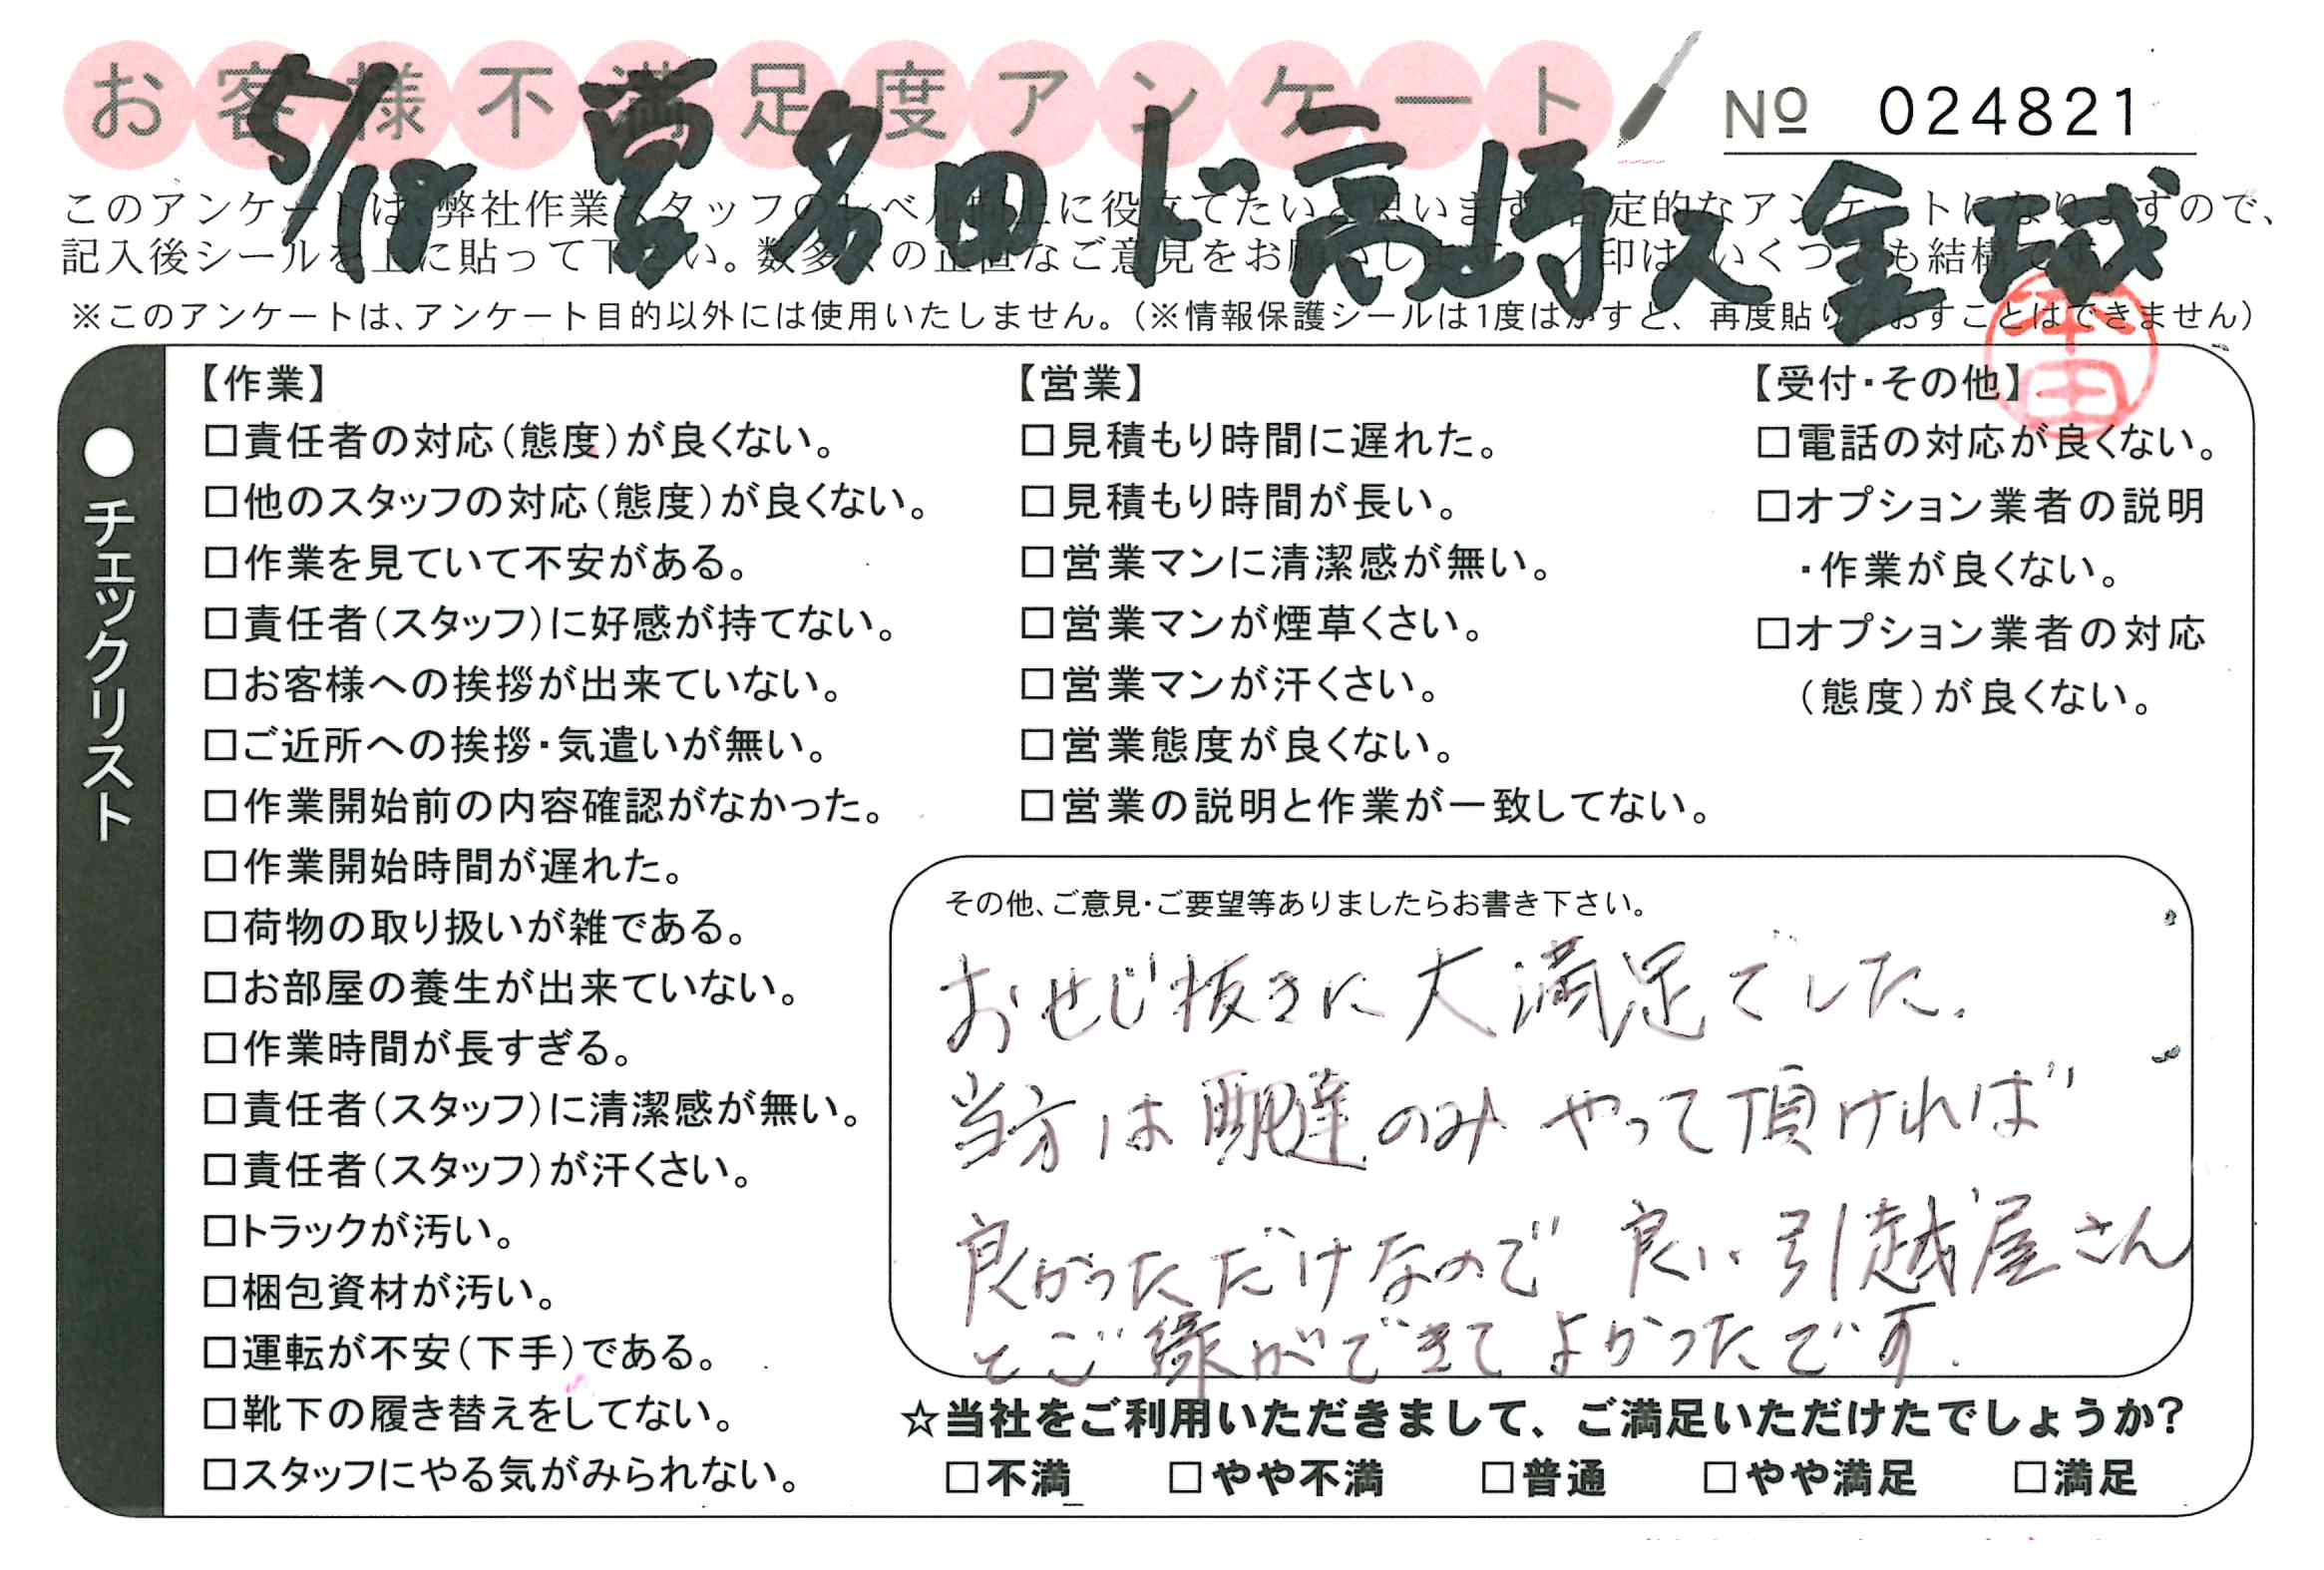 お客様不満足度アンケート
№ 024821
5/18 営 名田 ド高崎 ス金城
このアンケートは、弊社作業スタッフのレベル向上に役立てたいと思います。否定的なアンケートになりますので、
記入後シールを上に貼って下さい。数多くの正直なご意見をお願いします。レ印はいくつでも結構です。
※このアンケートは、アンケート目的以外には使用いたしません。（※情報保護シールは1度はがすと、再度貼りなおすことはできません）
本田
●チェックリスト
【作業】
□責任者の対応（態度）が良くない。
□他のスタッフの対応（態度）が良くない。
□作業を見ていて不安がある。
□責任者（スタッフ）に好感が持てない。
□お客様への挨拶が出来ていない。
□ご近所への挨拶・気遣いが無い。
□作業開始前の内容確認がなかった。
□作業開始時間が遅れた。
□荷物の取り扱いが雑である。
□お部屋の養生が出来ていない。
□作業時間が長すぎる。
□責任者（スタッフ）に清潔感が無い。
□責任者（スタッフ）が汗くさい。
□トラックが汚い。
□梱包資材が汚い。
□運転が不安（下手）である。
□靴下の履き替えをしてない。
□スタッフにやる気がみられない。
【営業】
□見積もり時間に遅れた。
□見積もり時間が長い。
□営業マンに清潔感が無い。
□営業マンが煙草くさい。
□営業マンが汗くさい。
□営業態度が良くない。
□営業の説明と作業が一致してない。
【受付・その他】
□電話の対応が良くない。
□オプション業者の説明
・作業が良くない。
□オプション業者の対応
（態度）が良くない。
その他、ご意見・ご要望等ありましたらお書き下さい。
おせじ抜きに大満足でした.
当方は配達のみやって頂ければ
良かっただけなので良い引越屋さん
とご縁ができてよかったです.
☆当社をご利用いただきまして、ご満足いただけたでしょうか?
□不満 □やや不満 □普通 □やや満足 □満足